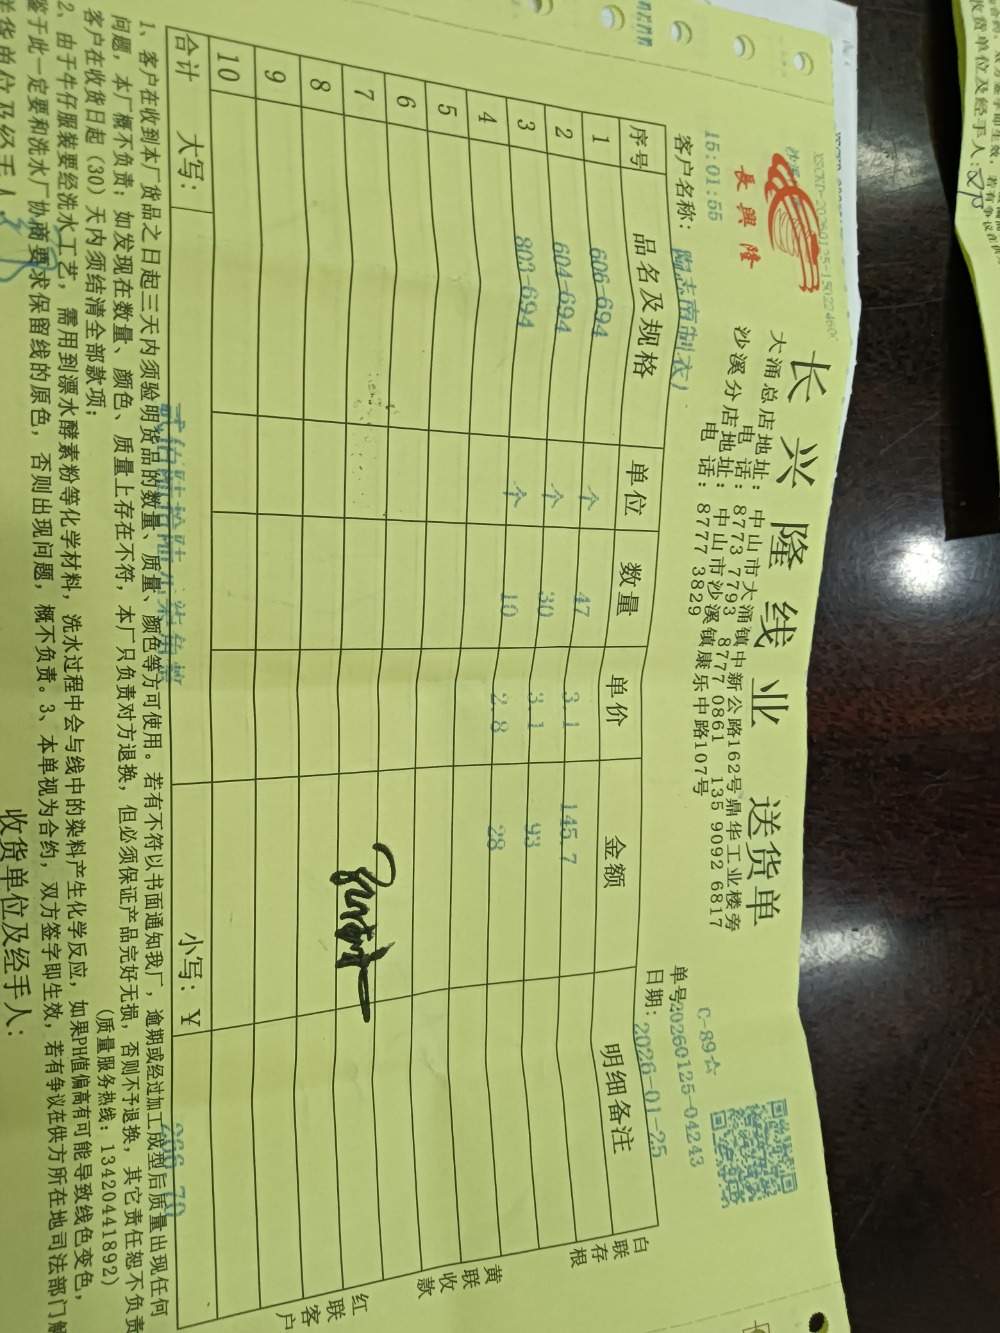 XSCKD-20260125-15022460
長興隆
长兴隆线业 送货单
大涌总店地址: 中山市大涌镇中新公路162号鼎华工业楼旁
电话: 8773 7793 8777 0861 135 9092 6817
沙溪分店地址: 中山市沙溪镇康乐中路107号
电话: 8777 3829
C-89☆
15:01:55
单号20260125-04243
客户名称: 陶志南制衣)
日期: 2026-01-25
序号 品名及规格 单位 数量 单价 金额 明细备注
1 606-694 个 47 3.1 145.7
2 604-694 个 30 3.1 93
3 803-694 个 10 2.8 28
4
5
6
7
8
9
10
合计 大写: 贰佰陆拾陆元柒角整 小写: ¥ 266.70
白联存根
黄联收款
红联客户
1、客户在收到本厂货品之日起三天内须验明货品的数量、质量、颜色等方可使用。若有不符以书面通知我厂，逾期或经过加工成型后质量出现任何
问题，本厂概不负责；如发现在数量、颜色、质量上存在不符，本厂只负责对方退换，但必须保证产品完好无损，否则不予退换，其它责任恕不负责
客户在收货日起（30）天内须结清全部款项； (质量服务热线：13420441892)
2、由于牛仔服装要经洗水工艺，需用到漂水酵素粉等化学材料，洗水过程中会与线中的染料产生化学反应，如果PH值偏高有可能导致线色变色，
鉴于此一定要和洗水厂协商要求保留线的原色，否则出现问题，概不负责。3、本单视为合约，双方签字即生效，若有争议在供方所在地司法部门解
送货单位及经手人 收货单位及经手人:
收货单位及经手人: